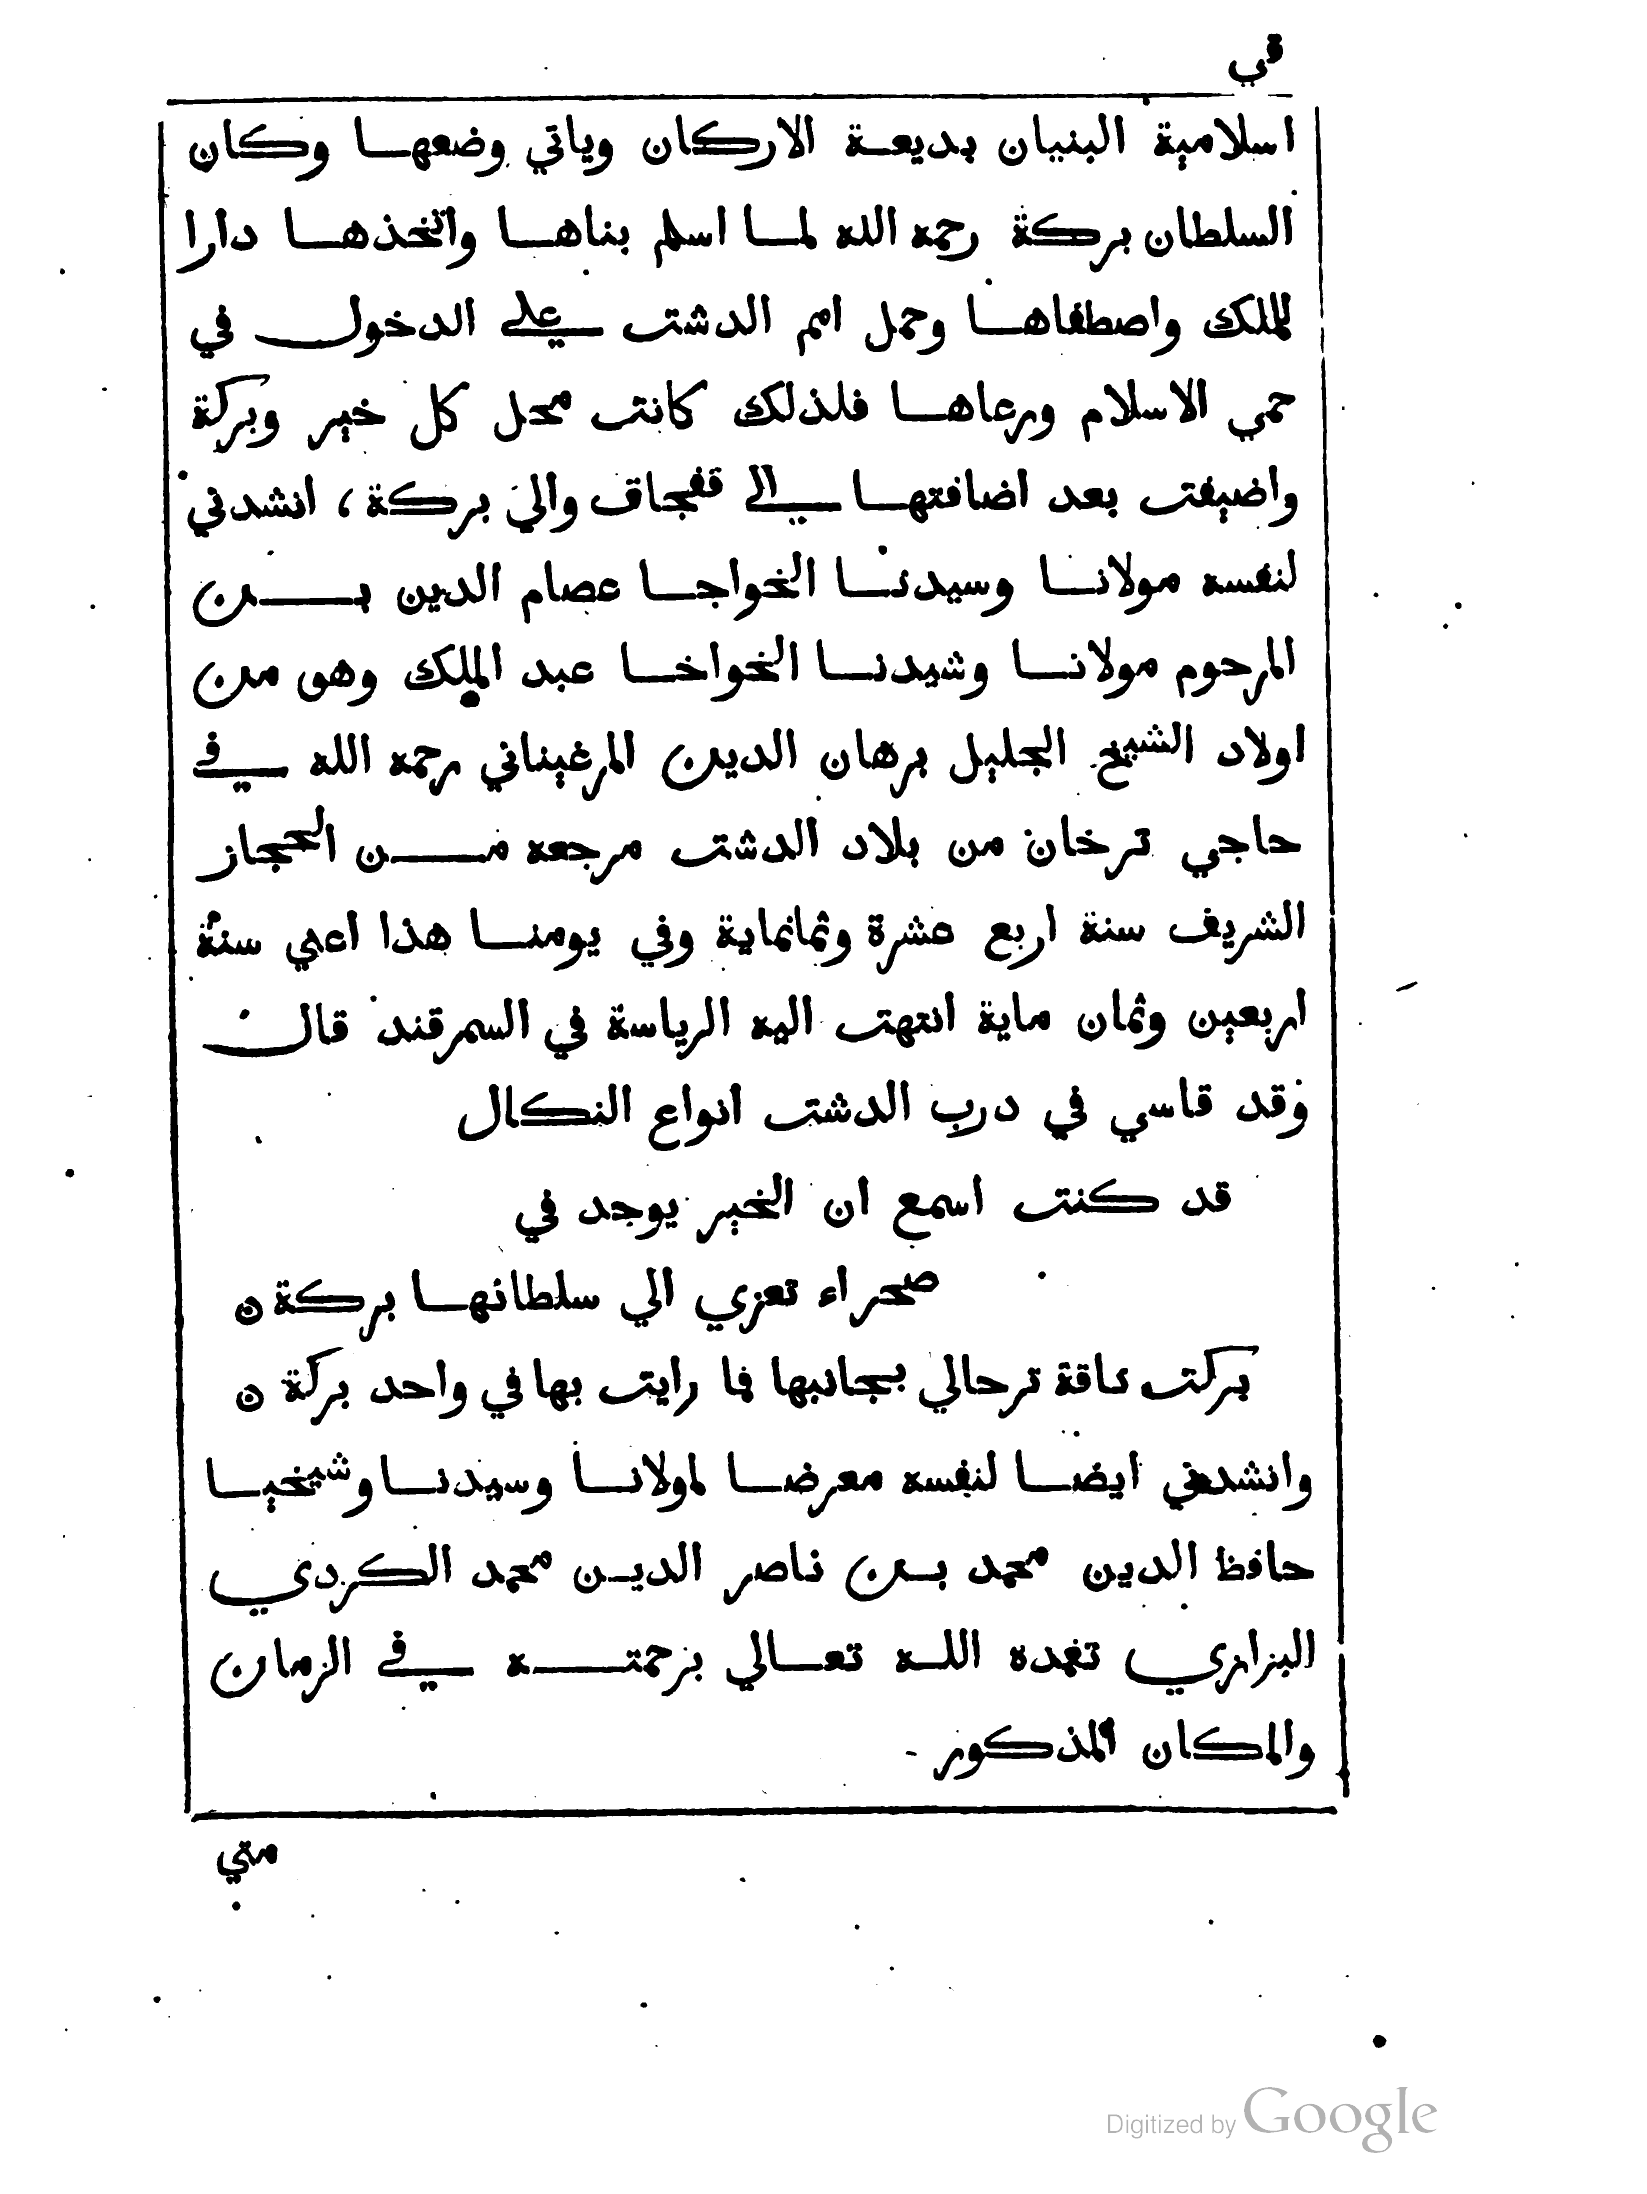 قي
اسلامية البنيان بديعة الاركان وياتي وضعها وكان
السلطان بركة رحمه الله لما اسلم بناها واتخذها دارا
للملك واصطفاها وحمل امم الدشت علي الدخول في
حمي الاسلام ورعاها فلذلك كانت محل كل خير وبركة
واضيفت بعد اضافتها الي قفجاق والي بركة، انشدني
لنفسه مولانا وسيدنا الخواجا عصام الدين بن
المرحوم مولانا وشيدنا الخواخا عبد الملك وهو من
اولاد الشيخ الجليل برهان الدين المرغيناني رحمه الله في
حاجي ترخان من بلاد الدشت مرجعه من الحجاز
الشريف سنة اربع عشرة وثمانماية وفي يومنا هذا اعني سنة
اربعين وثمان ماية انتهت اليه الرياسة في السمرقند قال
وقد قاسي في درب الدشت انواع النكال
قد كنت اسمع ان الخير يوجد في
صحراء تعزي الي سلطانها بركة ن
بركت ناقة ترحالي بجانبها فما رايت بها في واحد بركة ن
وانشدني ايضا لنفسه معرضا لمولانا وسيدنا وشيخيا
حافظ الدين محمد بن ناصر الدين محمد الكردي
البزازي تغمده الله تعالي برحمته في الزمان
والمكان المذكور -
متي
Digitized by Google